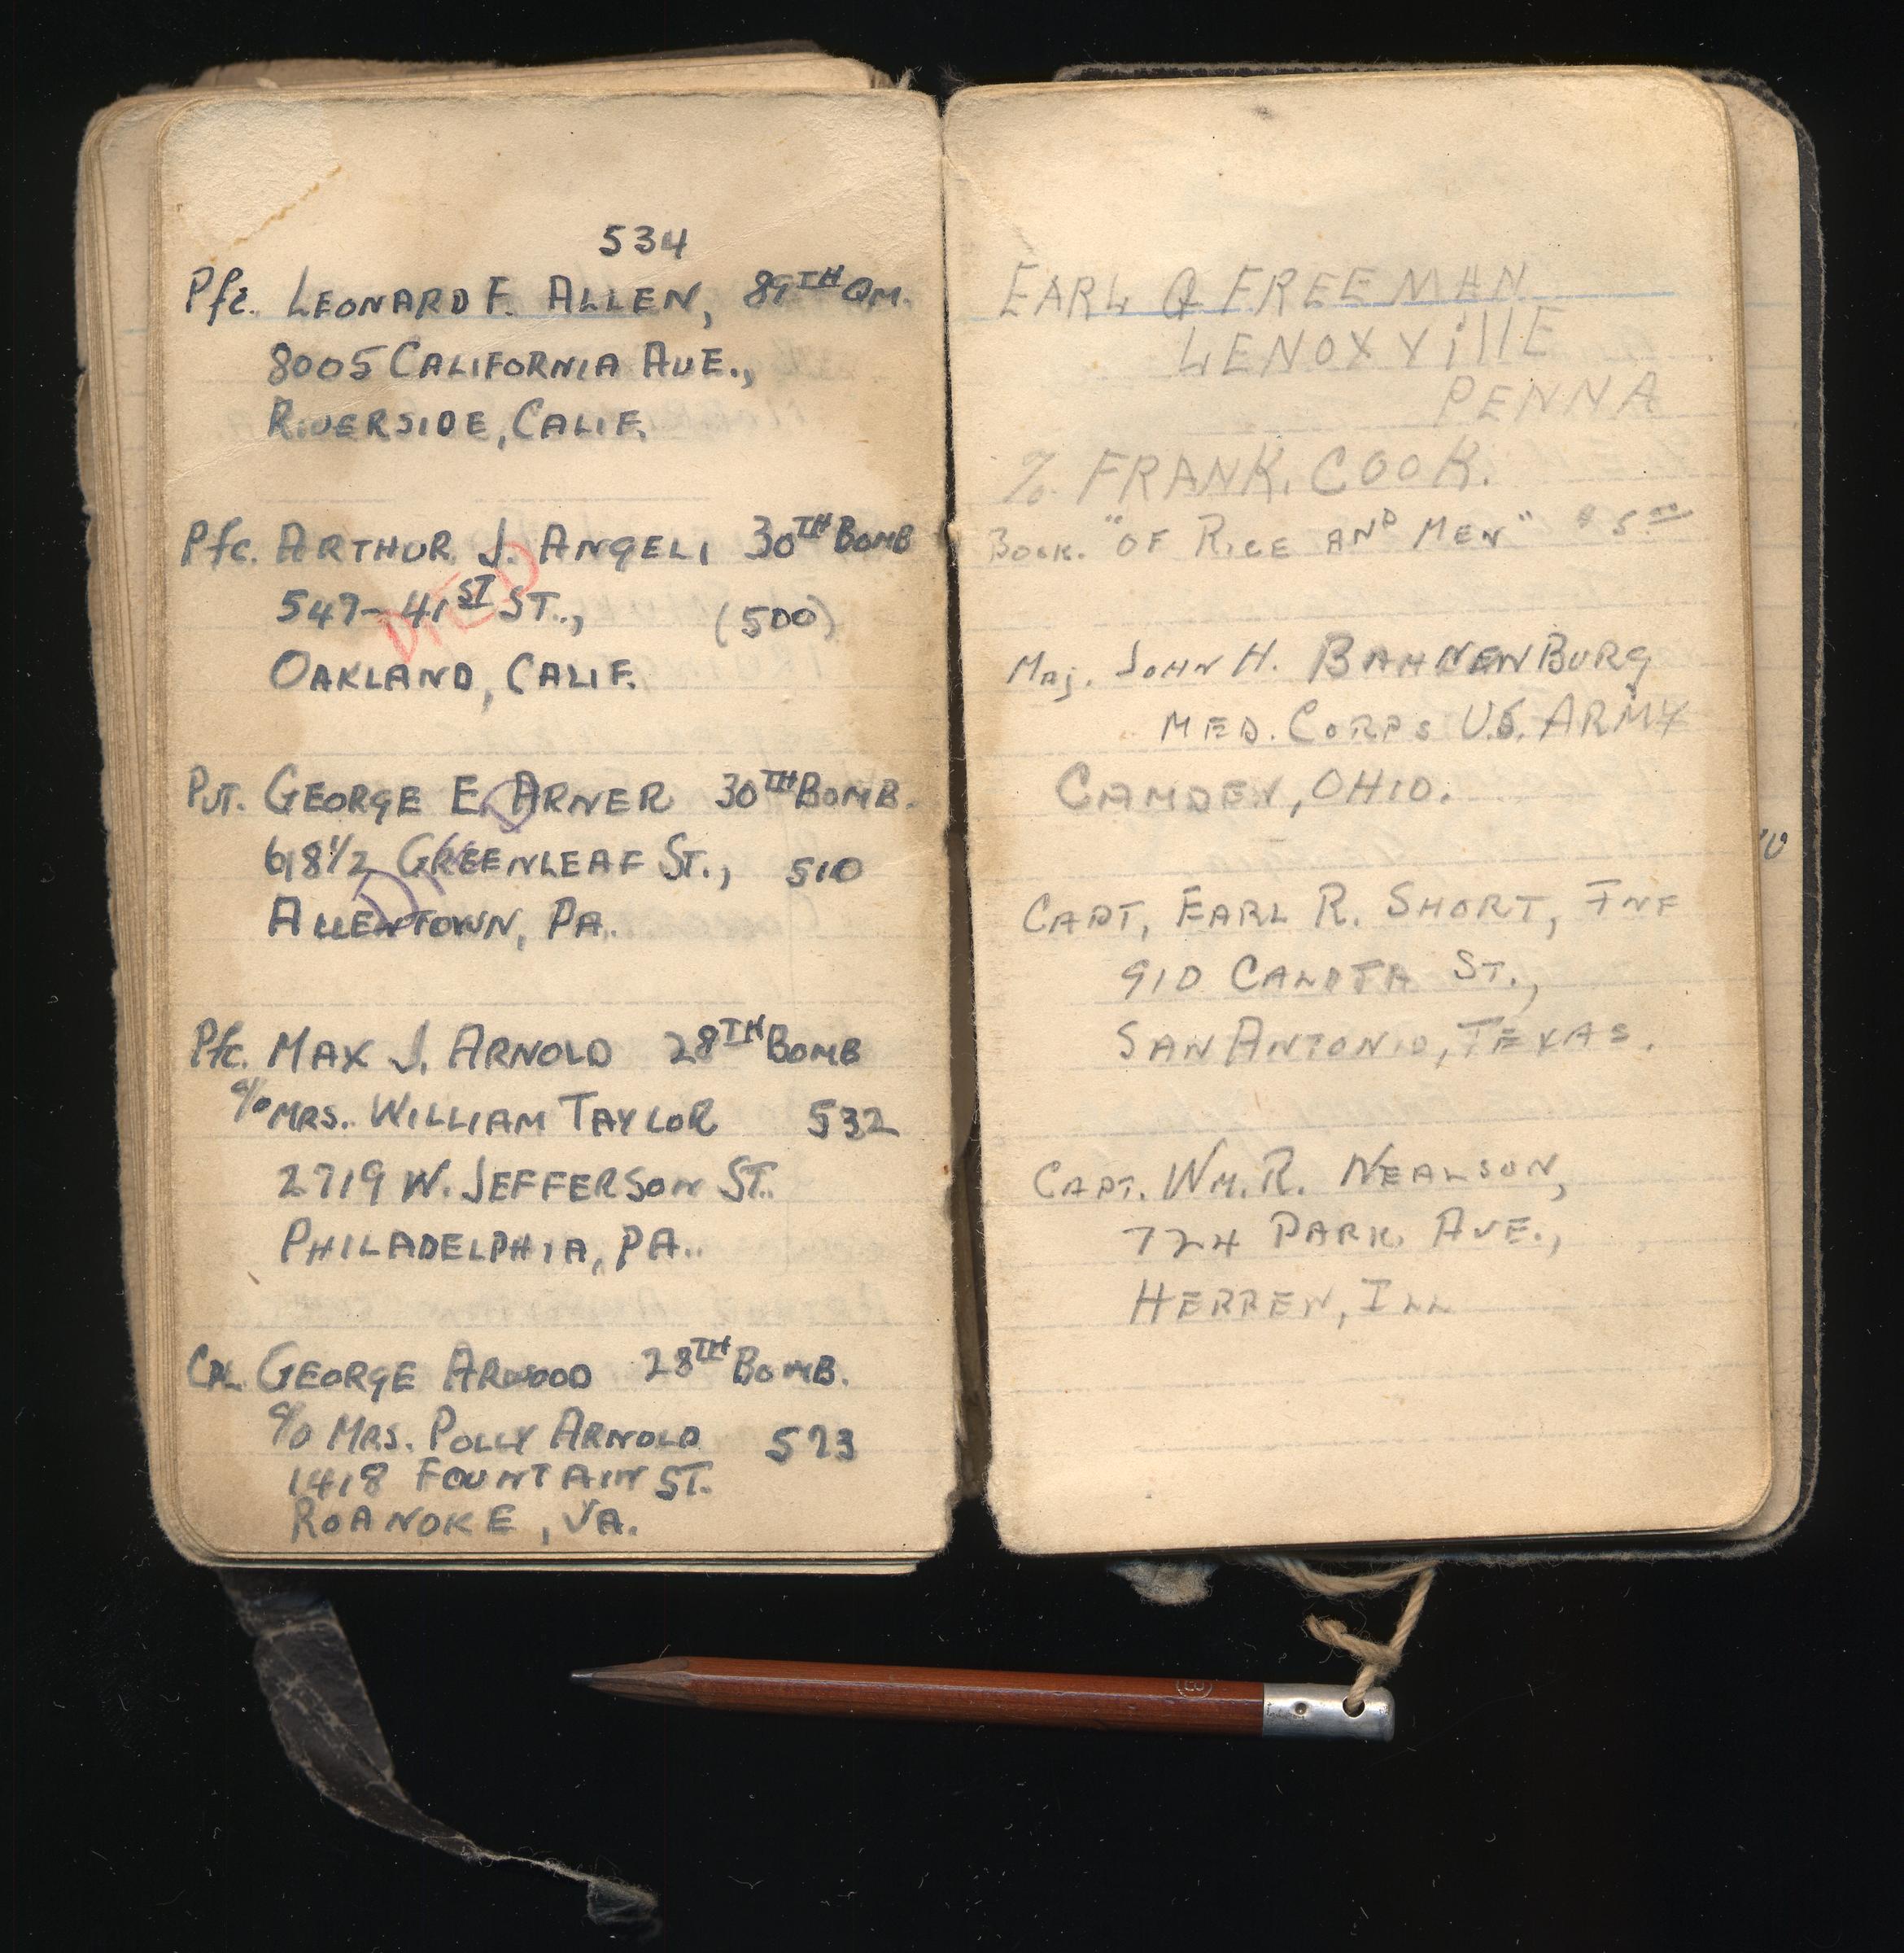 534
Pfc. LEONARD F. ALLEN, 89TH QM.
8005 CALIFORNIA AVE.,
RIVERSIDE, CALIF.
Pfc. ARTHUR J. ANGELI 30TH BOMB
547-41ST ST., (500)
DIED
OAKLAND, CALIF.
PVT. GEORGE E. ARNER 30TH BOMB.
618 1/2 GREENLEAF ST., 510
ALLENTOWN, PA.
Pfc. MAX J. ARNOLD 28TH BOMB
c/o MRS. WILLIAM TAYLOR 532
2719 W. JEFFERSON ST.
PHILADELPHIA, PA..
CPL. GEORGE ARWOOD 28TH BOMB.
c/o MRS. POLLY ARNOLD 573
1418 FOUNTAIN ST.
ROANOKE, VA.
EARL Q FREEMAN
LENOXVillE
PENNA
% FRANK. COOK.
BOOK. "OF RICE AND MEN" $5.00
MAJ. JOHN H. BAHNENBURG
MED. CORPS U.S. ARMY
CAMDEN, OHIO.
CAPT, EARL R. SHORT, INF
910 ST.,
SAN ANTONIO, TEXAS.
CAPT. WM. R. NEALSON,
724 PARK AVE.,
HERREN, ILL